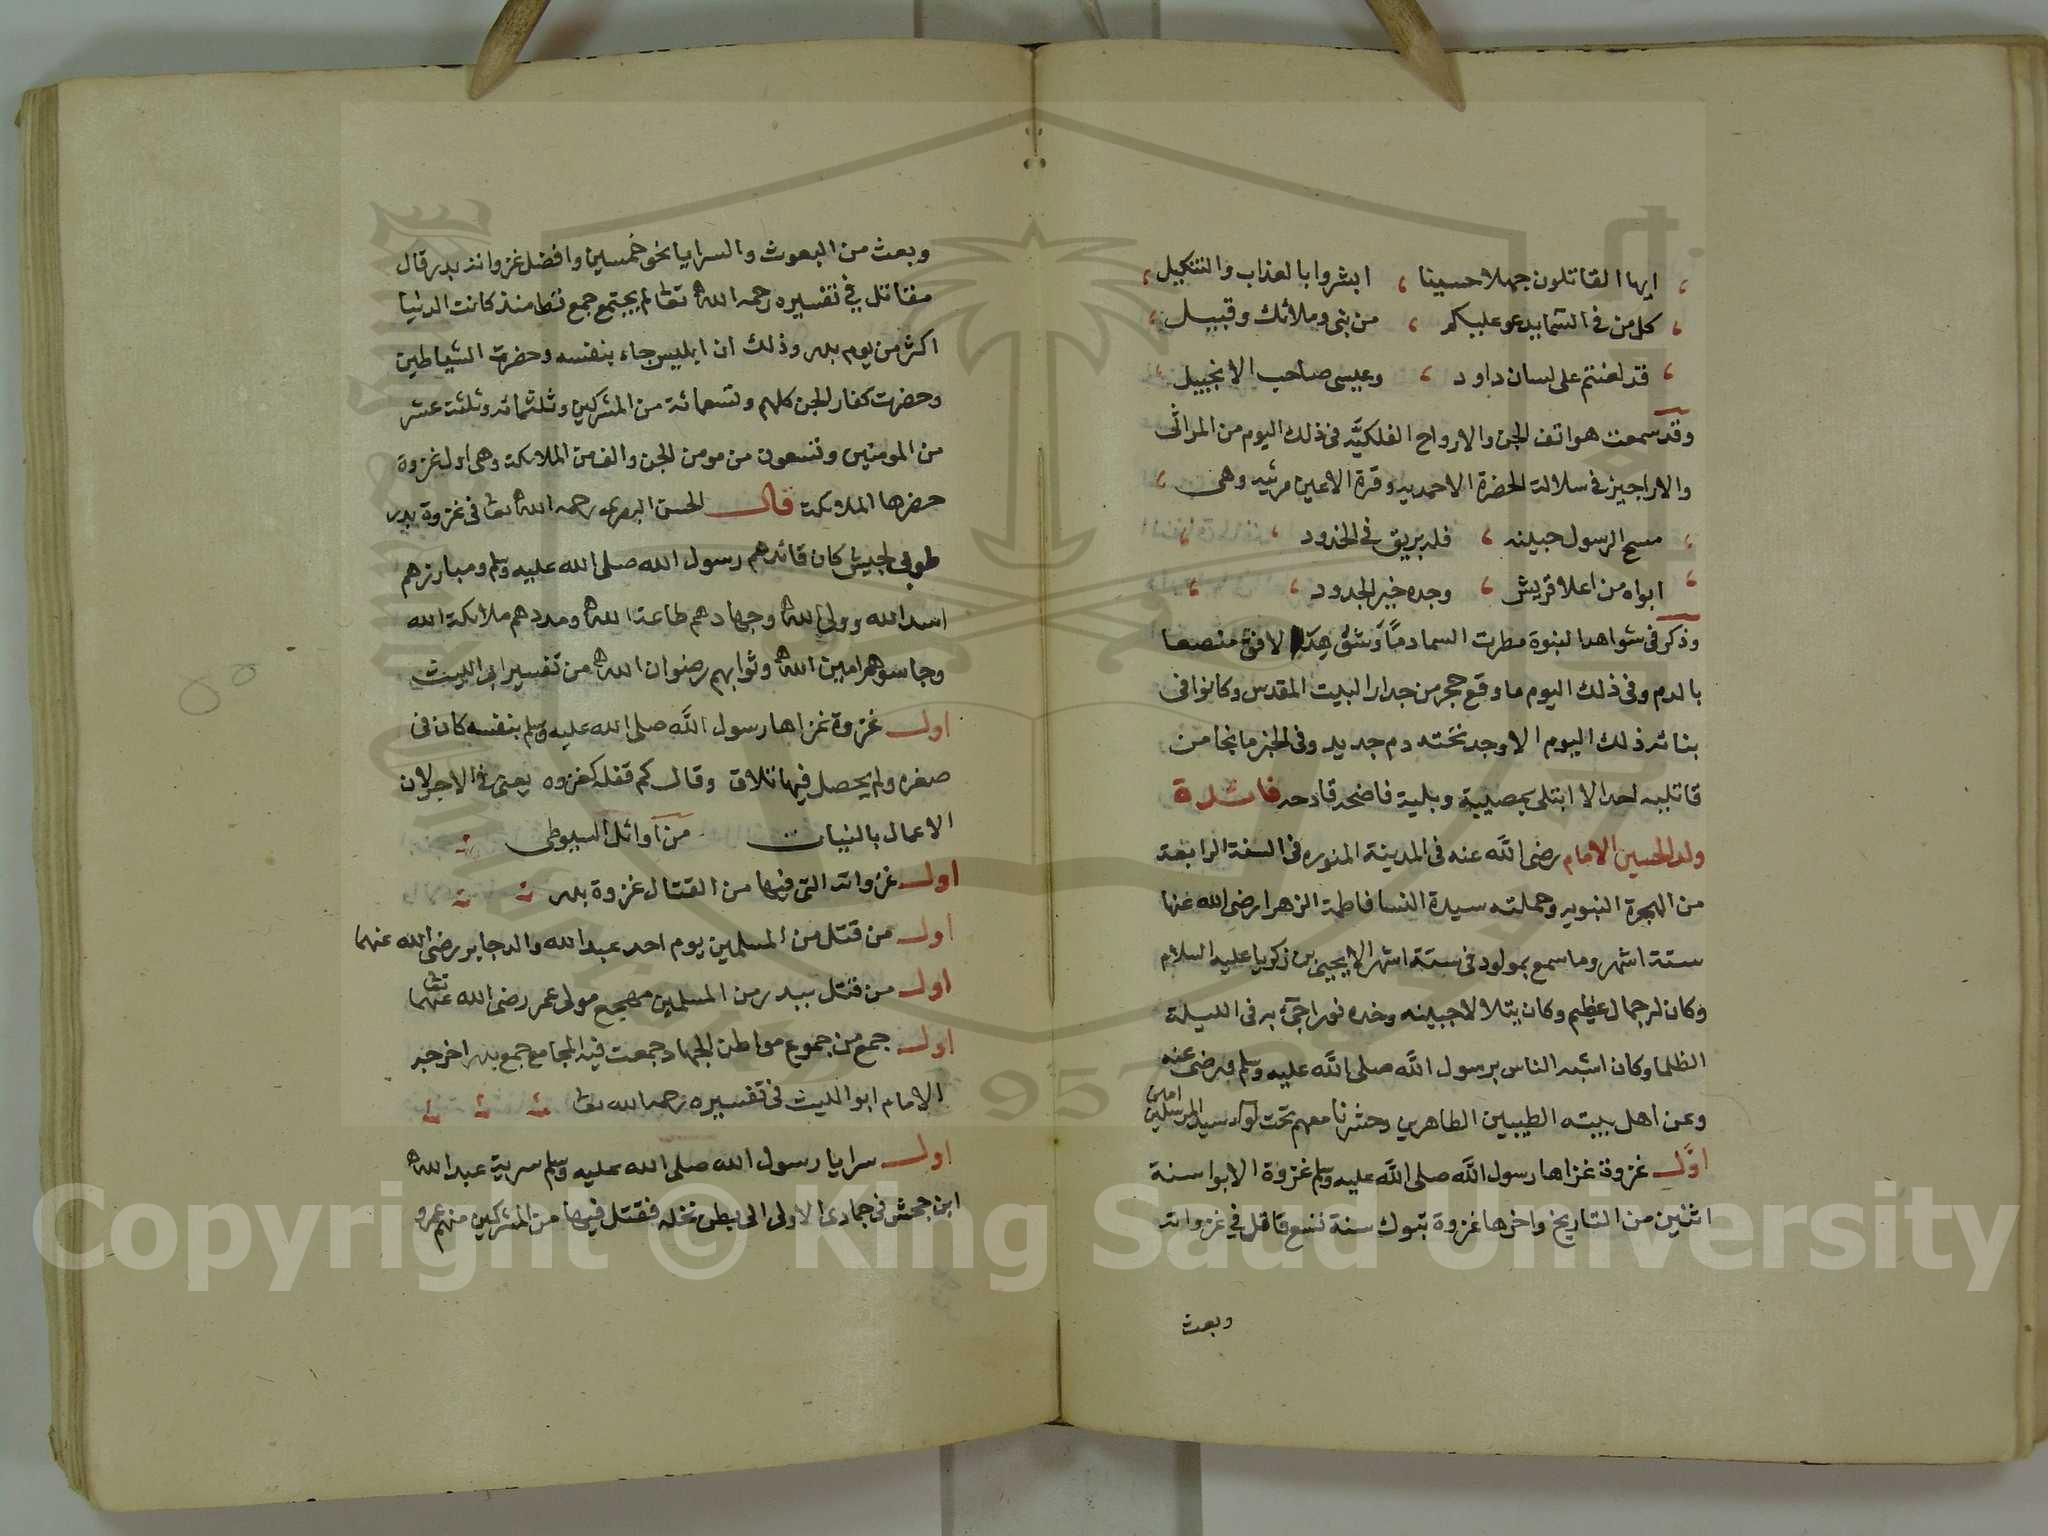 ايها القاتلون جهلا حسينا ، ابشروا بالعذاب والتنكيل ،
كل من في السما يدعو عليكم ، من نبى وملائك وقبيل ،
قد لعنتم على لسان داود ، وعيسى صاحب الانجييل ،
وقد سمعت هواتف الجن والارواح الفلكيه فى ذلك اليوم من المراثى
والاراجيز فى سلالة الحضرة الاحمديه وقرة الاعين مرثيه وهى ،
مسح الرسول جبينه ، فله بريق فى الخدود ،
ابواه من اعلا قريش ، وجده خير الجدود ،
وذكر فى شواهد النبوة مطرت السما دمًا الافق منصعا
بالدم وفى ذلك اليوم ما وقع حجر من جدار البيت المقدس وكانوا فى
بنائه ذلك اليوم الا وجد تحته دم جديد وفى الخبر ما نجا من
قاتليه احد الا ابتلى بمصيبة وبلية فاضحه قادحه فائدة
ولد الحسين الامام رضى الله عنه فى المدينة المنوره فى السنة الرابعة
من الهجرة النبويه وحملته سيدة النسا فاطمة الزهرا رضى الله عنها
ستة اشهر وما سمع بمولود فى ستة اشهر الا يحيى بن زكريا عليه السلام
وكان له جمال عظيم وكان يتلالا جبينه وخده نورا به فى الليلة
الظلما وكان اشبه الناس برسول الله صلى الله عليه وسلم فرضى عنه
وعن اهل بيته الطيبين الطاهرين وحشرنا معهم تحت لواء سيد المرسلين امين
اول غزوة غزاها رسول الله صلى الله عليه وسلم غزوة الابوا سنة
اثنين من التاريخ واخرها غزوة تبوك سنة تسع قاتل فى غزواته
وبعث
وبعث من البعوث والسرايا نحو خمسين وافضل غزواته بدر قال
مقاتل في تفسيره رحمه الله تعا لم يجتمع جمع قط منذ كانت الدنيا
اكثر من يوم بدر وذلك ان ابليس جاء بنفسه وحضرت الشياطين
وحضرت كفار الجن كلهم وتسعمائة من المشركين وثلثمائه وثلثة عشر
من المومنين وتسعون من مومن الجن والف من الملائكة وهى اول غزوة
حضرها الملائكة قال الحسن البصرى رحمه الله تعا فى غزوة بدر
طوبى لجيش كان قائدهم رسول الله صلى الله عليه وسلم ومبارزهم
اسد الله وولى الله وجهادهم طاعة الله ومددهم ملائكة الله
وجاسوهم امين الله وثوابهم رضوان الله من تفسير ابو الليث
اول غزوة غزاها رسول الله صلى الله عليه وسلم بنفسه كان فى
صفره ولم يحصل فيها تلاق وقال كم قفله كغزوه يعنى فى الاجر لان
الاعمال بالنيات من اوائل السيوطى
اول غزواته التى فيها من القتال غزوة بدر
اول من قتل من المسلمين يوم احد عبد الله والد جابر رضى الله عنهما
اول من قتل ببدر من المسلمين مهجع مولى عمر رضى الله تعا عنهما
اول جمع من جموع مواطن الجهاد جمعت فيه المجامع جمع بدر اخرجه
الامام ابو الليث فى تفسيره رحمه الله تعا
اول سرايا رسول الله صلى الله عليه وسلم سرية عبد الله
ابن جحش فى جمادى الاولى الى بطن نخله فقتل فيها من المشركين منهم عمرو
Copyright © King Saud University